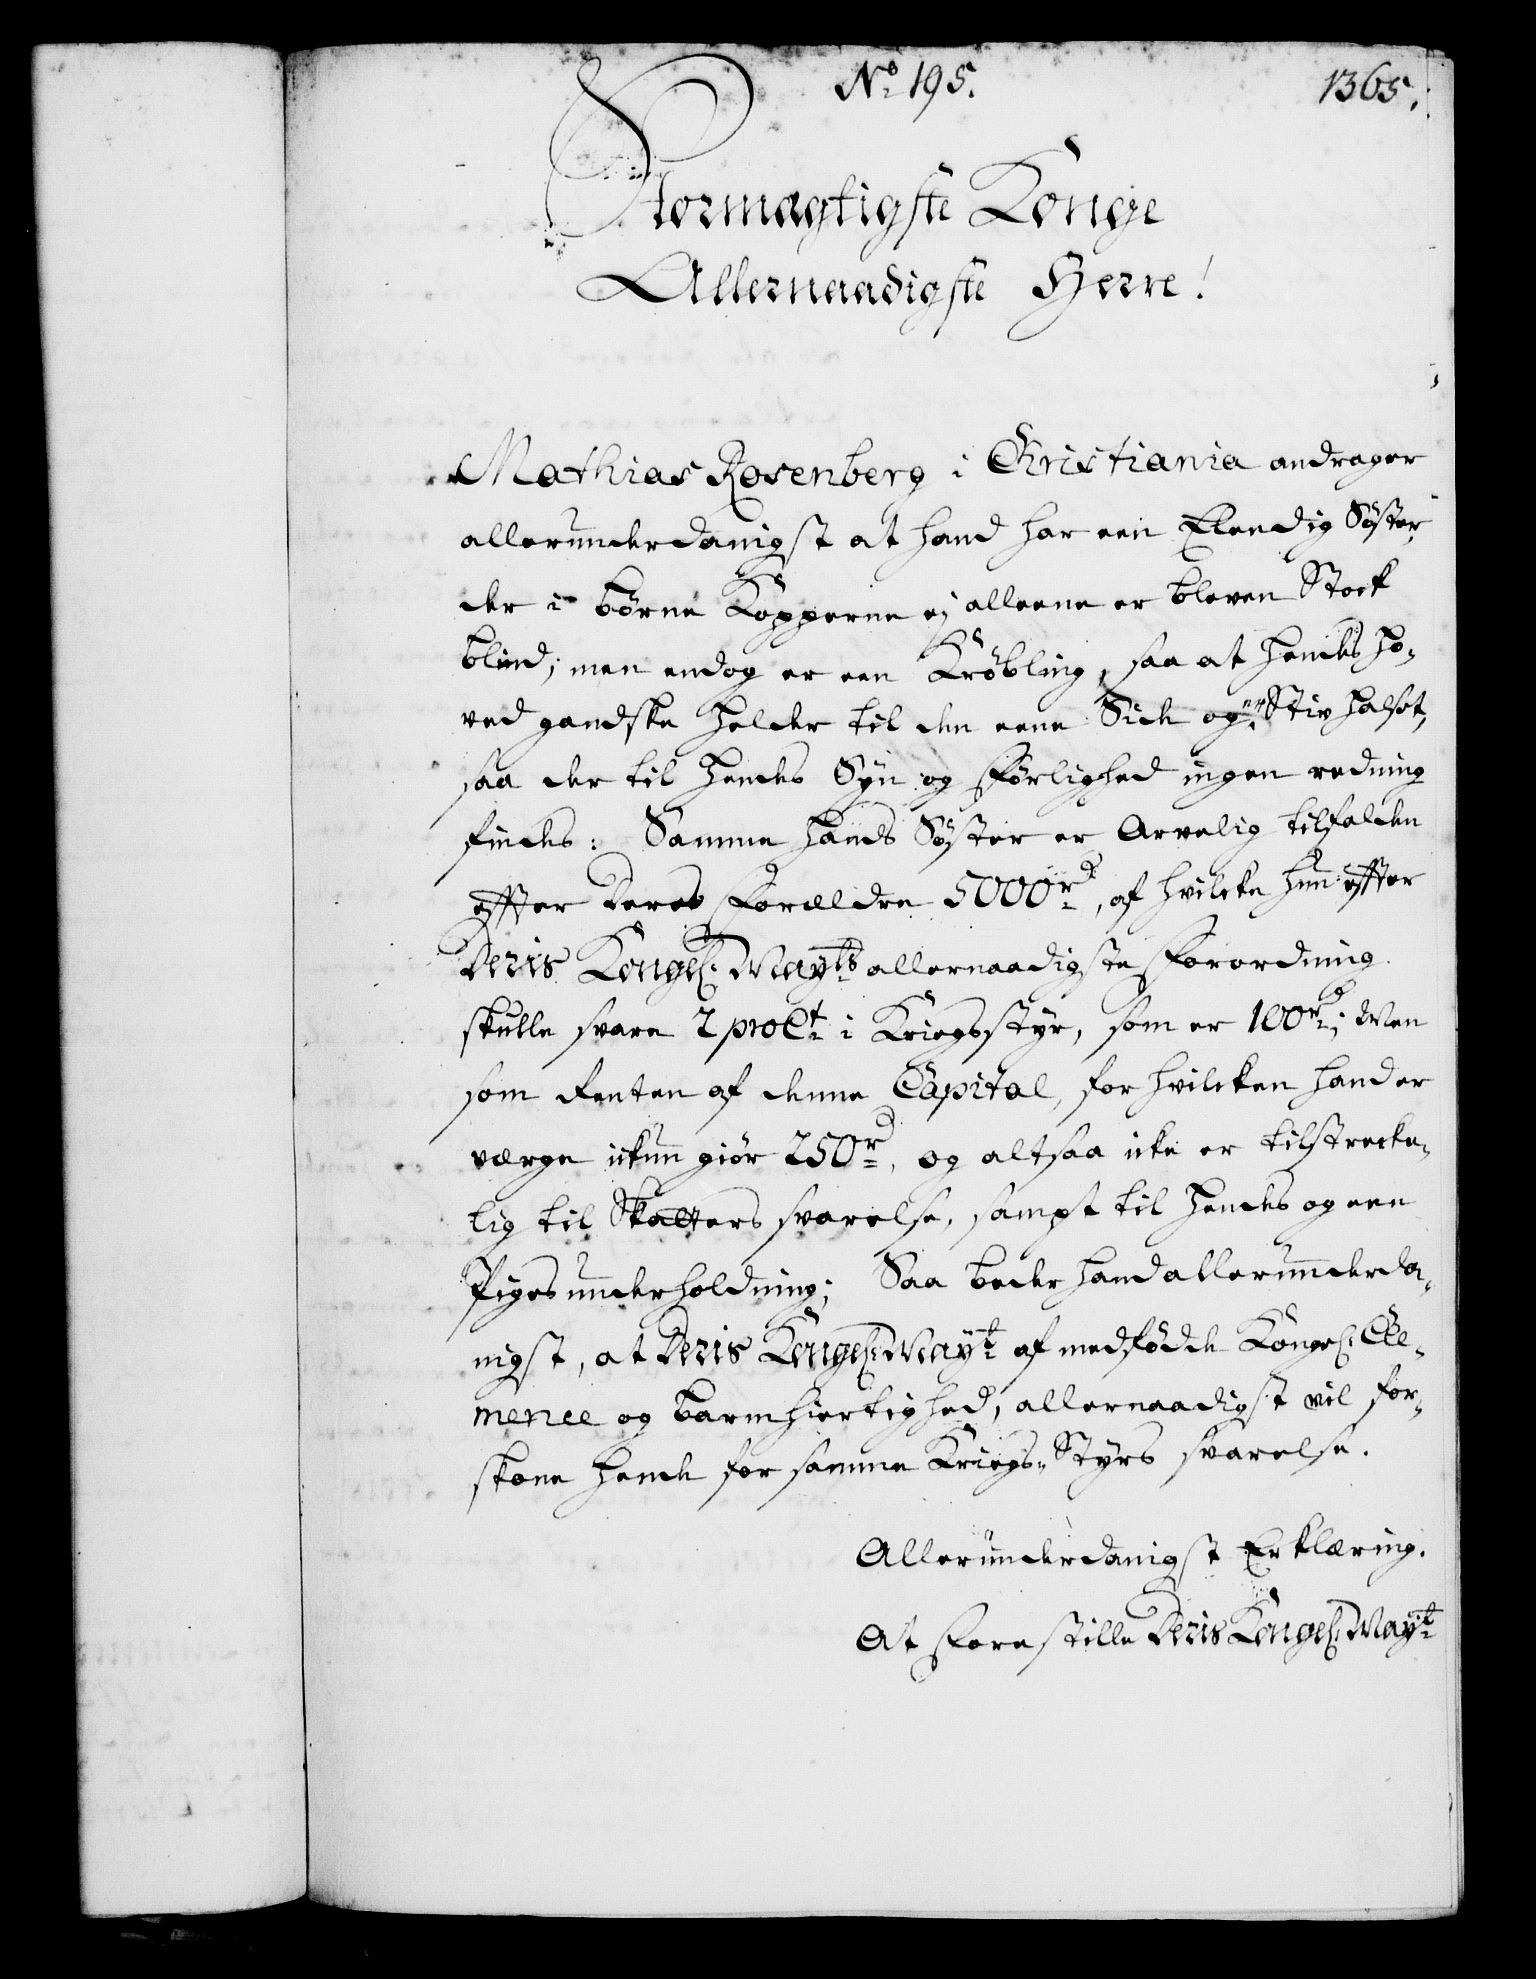 No. 195.
1365.
Stormægtigste Konge
Allernaadigste Herre!
Mathias Rosenberg i Christiania andrager
allerunderdanigst at hand har een Elendig Søster,
der i børne Kopperne ej alleene er bleven Stock
blind; men endog er een Krøbling, saa at hendes ho-
ved gandske helder til den eene Side og er Stiv halset,
saa der til hendes Syn og Førlighed ingen redning
findes: Samme hands Søster er Arvelig tilfalden
effter Deres Forældre 5000 rd, af hvilcke hun effter
Deris Kongel. Mayts allernaadigste Forordning
skulle svare 2 proCt i Kriegsstyr, som er 100 rd; Men
som Renten af denne Capital, for hvilcken hand er
værge ickun giør 250 rd, og altsaa icke er tilstrecke-
lig til Skatters svarelse, sampt til hendes og een
Piges underholdning; Saa beder hand allerunderda-
nigst, at Deris Kongel. Mayt af medfødde Kongel. Cle-
mence og barmhiertighed, allernaadigst vil for-
skone hende for samme Kriegs-Styrs svarelse.
Allerunderdanigst Erklæring.
At Forestille Deris Kongel. Mayt